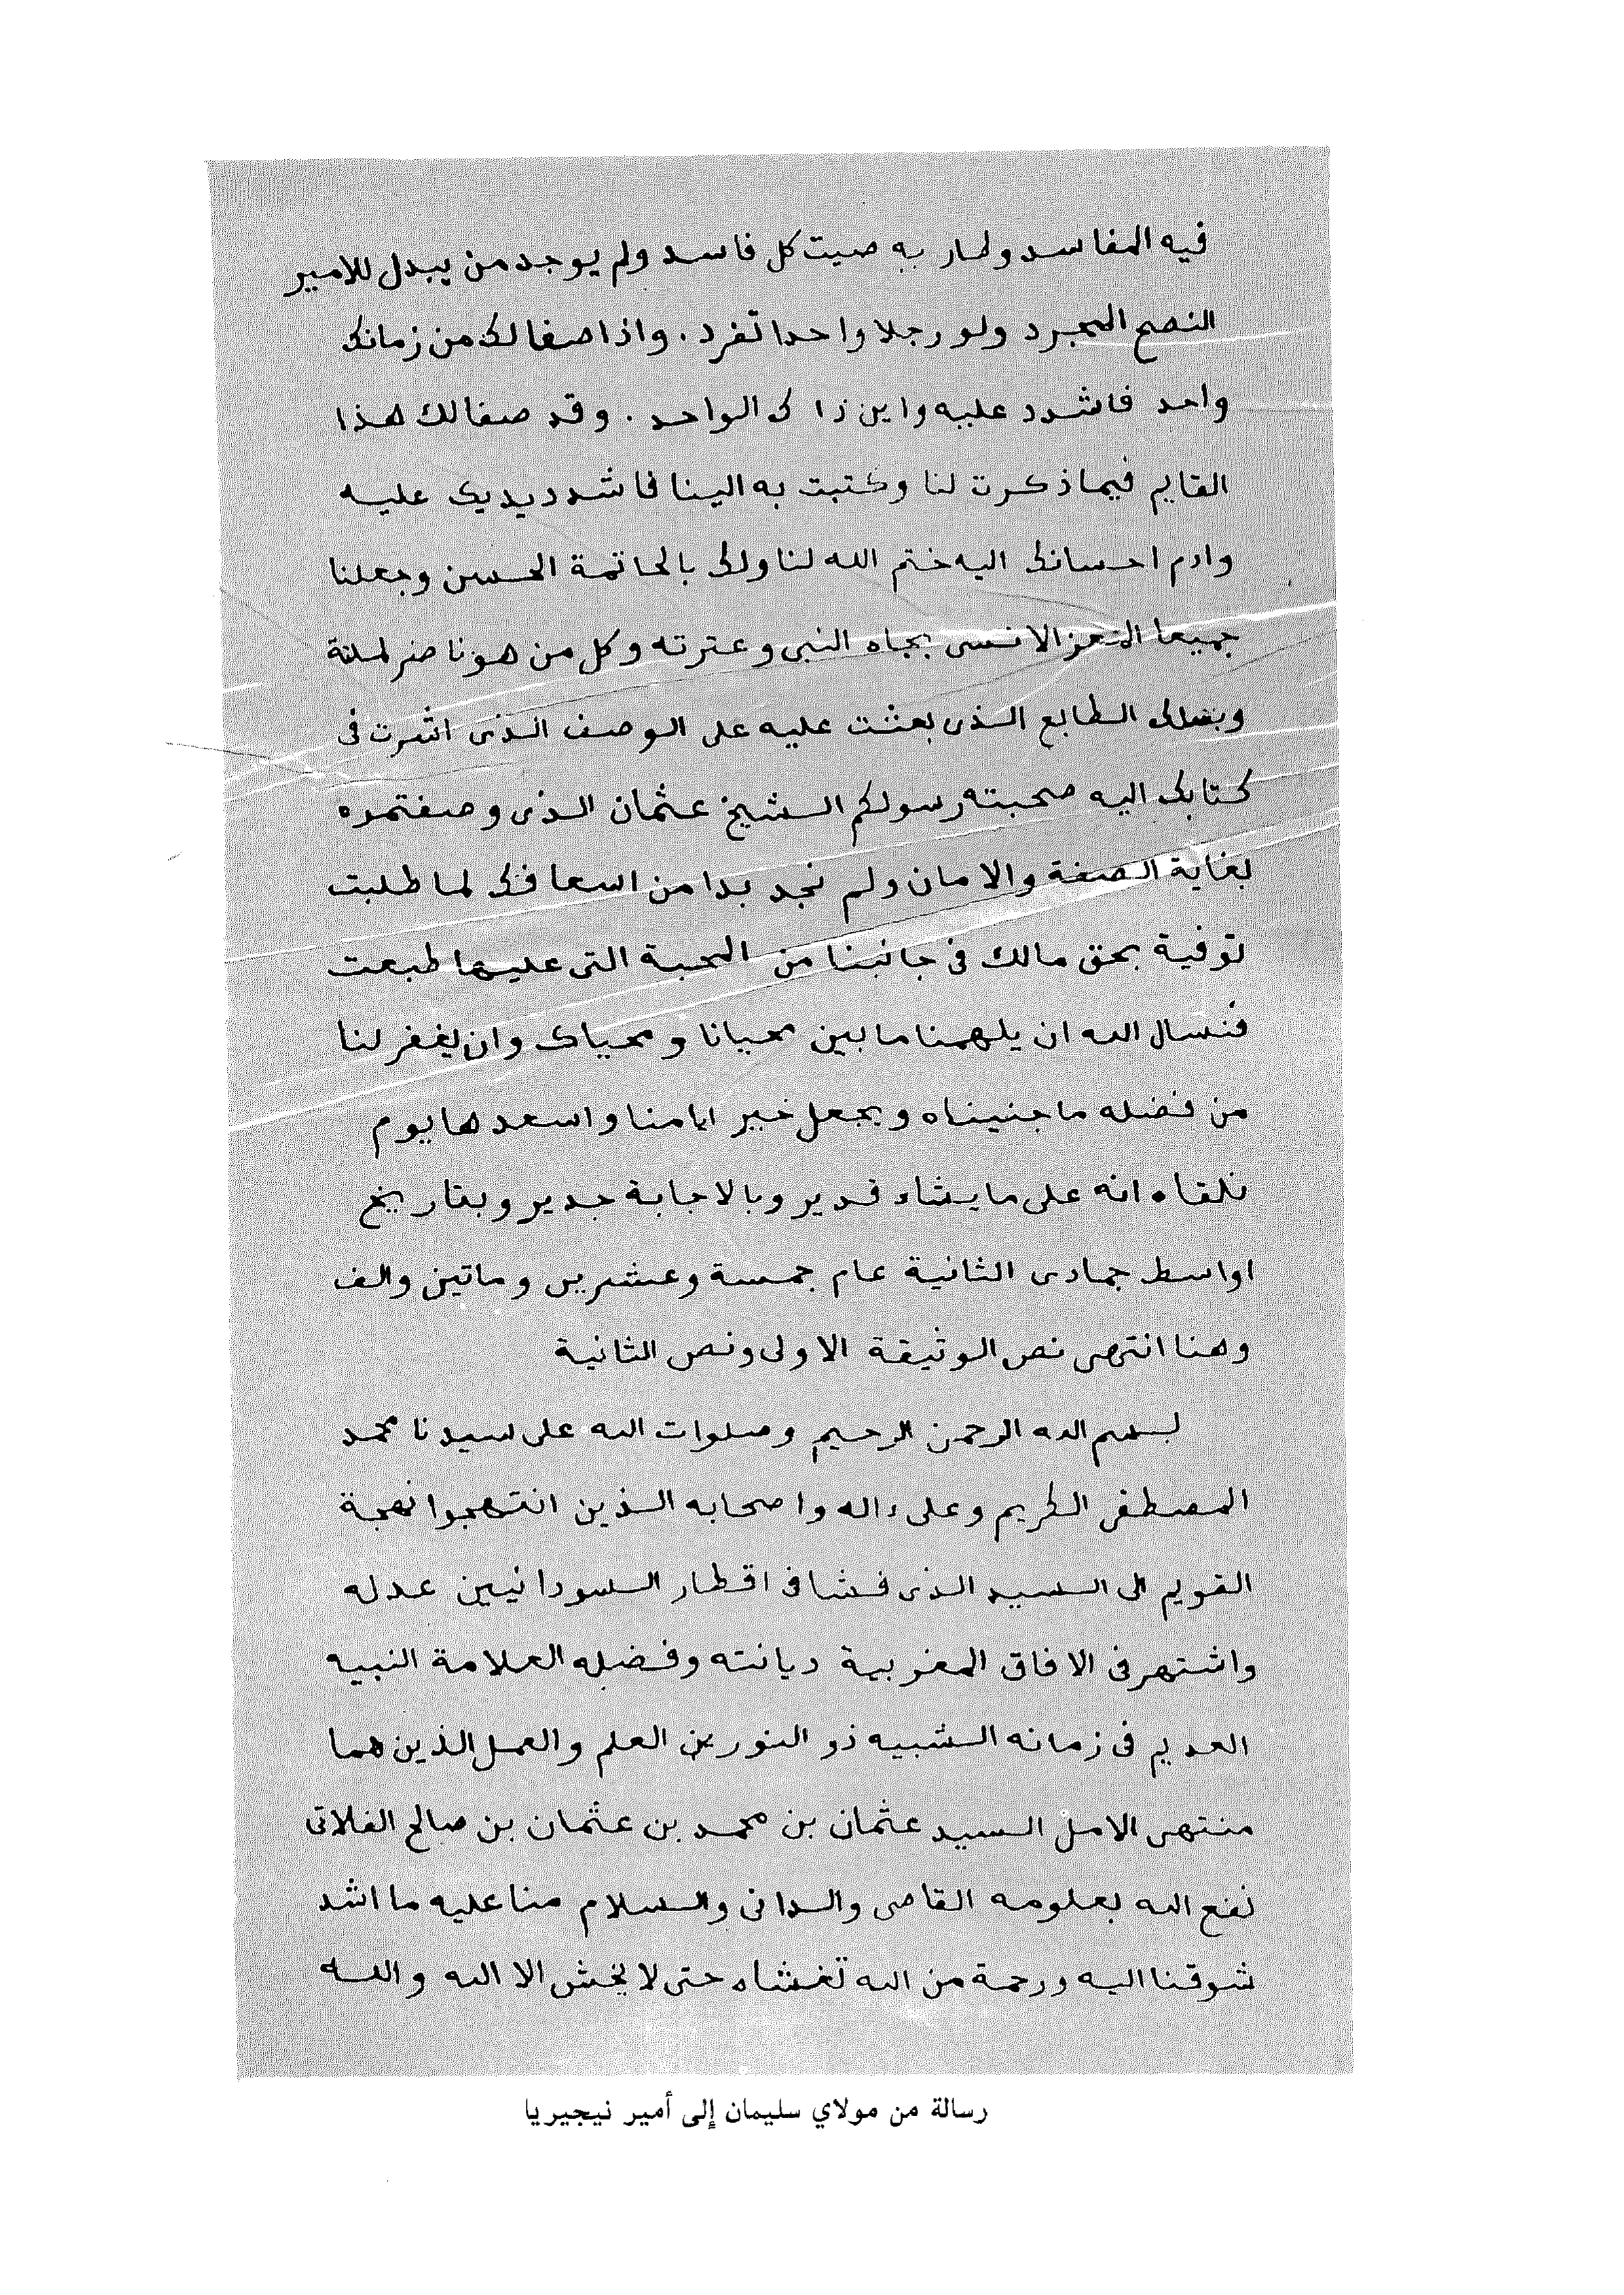 فيه المفاسد وطار به صيت كل فاسد ولم يوجد من يبدل للامير
النصح المجرد ولو رجلا واحدا تفرد . واذا صفا لك من زمانك
واحد فاشدد عليه واين ذاك الواحد . وقد صفا لك هذا
القايم فيما ذكرت لنا وكتبت به الينا فاشدد يديك عليه
وادم احسانك اليه ختم الله لنا ولك بالخاتمة الحسن وجعلنا
جميعا الاسنى بجاه النبي وعترته وكل من هو ناصر لملته
ويصلك الطابع الذي بعثت عليه على الوصف الذي اشرت في
كتابك اليه صحبته رسولكم الشيخ عثمان الذي وصفتموه
بغاية الصفة والامان ولم نجد بدا من اسعافك لما طلبت
توفية بحق مالك في جانبنا من المحبة التي عليها طبعت
فنسال الله ان يلهمنا ما بين محيانا ومحياك وان يغفر لنا
من فضله ما جنيناه ويجعل خير ايامنا واسعدها يوم
نلقاه انه على ما يشاء قدير وبالاجابة جدير وبتاريخ
اواسط جمادى الثانية عام خمسة وعشرين وماتين والف
وهنا انتهى نص الوثيقة الاولى ونص الثانية
بسم الله الرحمن الرحيم وصلوات الله على سيدنا محمد
المصطفى الكريم وعلى ءاله واصحابه الذين انتهجوا نهجة
القويم الى السيد الذي فشا في اقطار السودانيين عدله
واشتهر في الافاق المغربية ديانته وفضله العلامة النبيه
العديم في زمانه الشبيه ذو النورين العلم والعمل الذين هما
منتهى الامل السيد عثمان بن محمد بن عثمان بن صالح الفلاتي
نفع الله بعلومه القاصي والداني والسلام منا عليه ما اشد
شوقنا اليه ورحمة من الله تغشاه حتى لا يخش الا الله والله
رسالة من مولاي سليمان إلى أمير نيجيريا